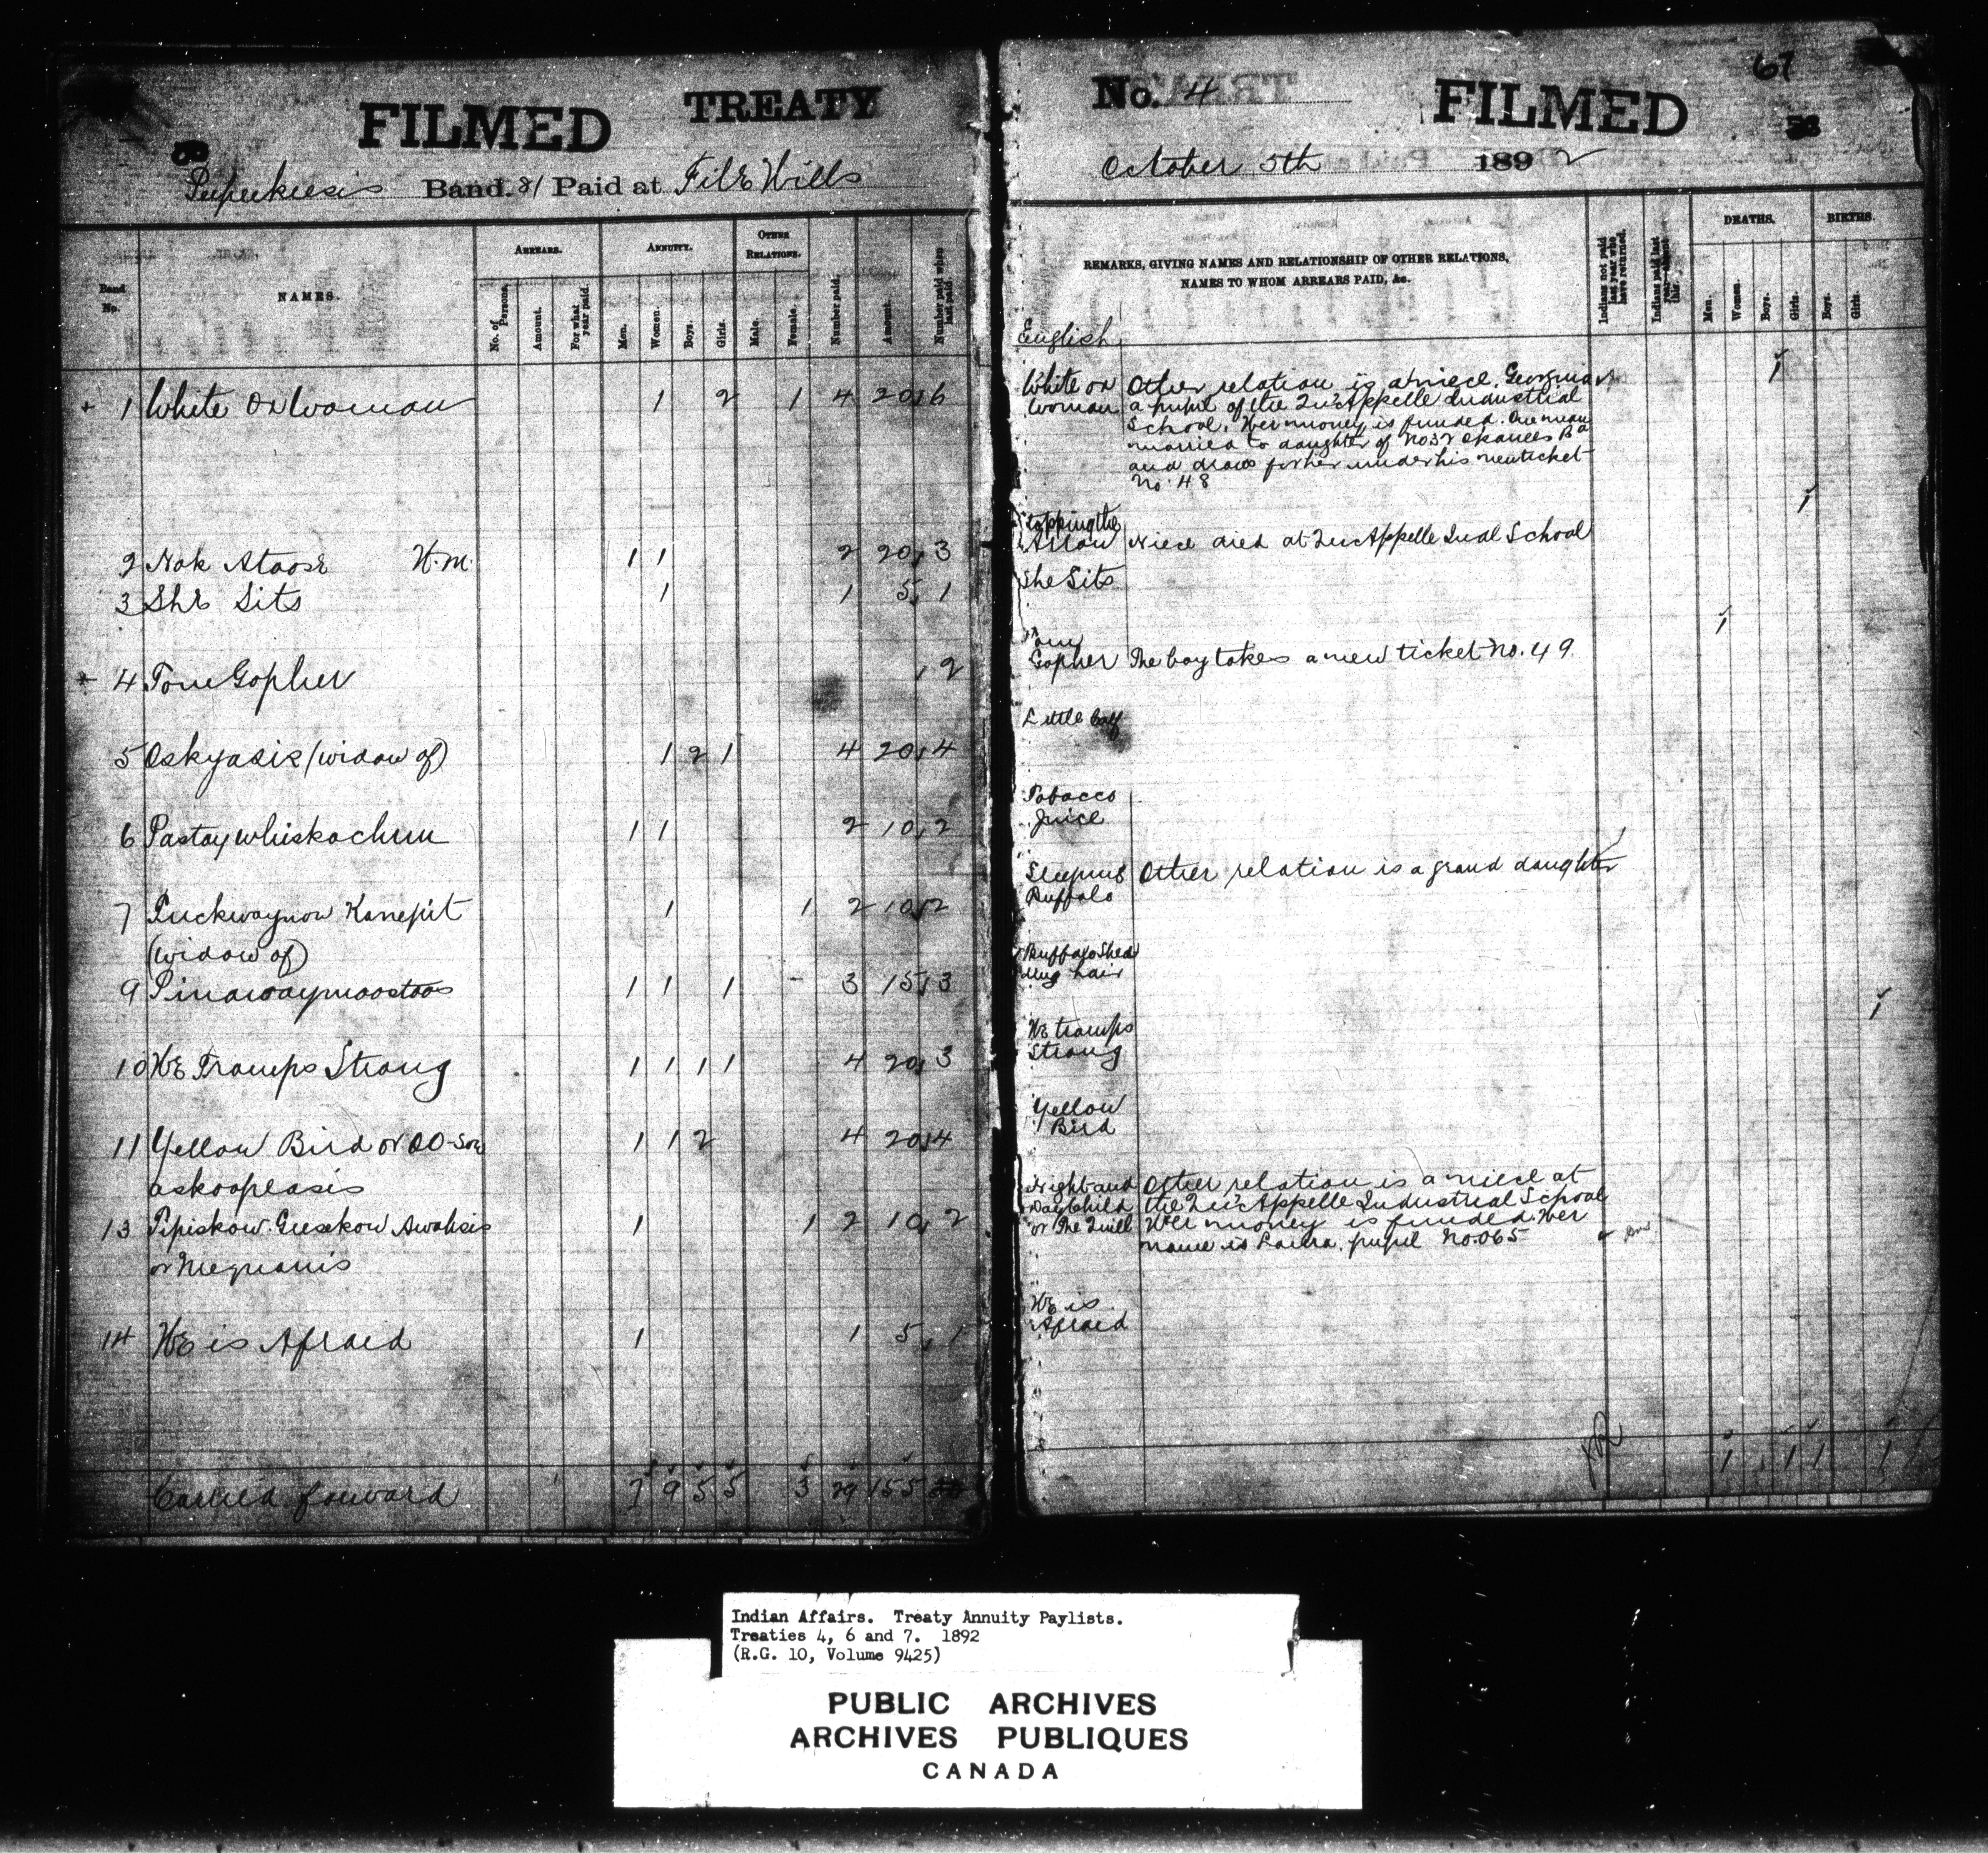 FILMED TREATY
Band. 81 Paid at File Hills
Band No.
NAMES.
ARREARS.
No. of Persons.
Amount.
For what year paid.
ANNUITY.
Men.
Women.
Boys.
Girls.
OTHER RELATIONS.
Male.
Female.
Number paid.
Amount.
Number paid when last paid.
+ 1 White Ox Woman 1 2 1 4 20 6
2 Nak Atoose H.M. 1 1 2 20 3
3 She Sits 1 1 5 1
4 Tom Gopher 2
5 Oskyasis (widow of) 1 2 1 4 20 4
6 Pastaywhiskachum 1 1 2 10 2
7 Puckwaynow Kanepit 1 1 2 10 2
(widow of)
9 Pinawaymoostoos 1 1 1 - 3 15 3
10 He Tramps Strong 1 1 1 1 4 20 3
11 Yellow Bird or OO-Sow 1 1 2 4 20 4
askoopeasis
13 Pipiskow Geesekow Awahsis 1 1 2 10 2
or Mequanis
14 He is Afraid 1 1 5 1
Carried forward 7 9 5 5 3 29 155
No. 4 FILMED 67
October 5th 1892
REMARKS, GIVING NAMES AND RELATIONSHIP OF OTHER RELATIONS,
NAMES TO WHOM ARREARS PAID, &c.
Indians not paid last year who have returned.
Indians paid last year—absent this.
DEATHS.
Men.
Women.
Boys.
Girls.
BIRTHS.
Boys.
Girls.
English
White ox Other relation is a niece, Georgina
woman a pupil of the Qu'Appelle Industrial
School. Her money is funded. One man
married to daughter of No 32 Okanees Bd
and draws for her under his new ticket
No. 48
1
1
Stopping the
Arrow Niece died at Qu'Appelle Indl School
She Sits
1
Tom
Gopher The boy takes a new ticket No. 49.
Little Calf
Tobacco
Juice
Sleeping Other relation is a grand daughter
Buffalo
Buffalo Shed
ding hair
1
He tramps
Strong
Yellow
Bird
Night and Other relation is a niece at
Day Child the Qu'Appelle Industrial School
or The Quill Her money is funded. Her
name is Laura, pupil No. 065
He is
Afraid
1 1 1 1
Indian Affairs. Treaty Annuity Paylists.
Treaties 4, 6 and 7. 1892
(R.G. 10, Volume 9425)
PUBLIC ARCHIVES
ARCHIVES PUBLIQUES
CANADA